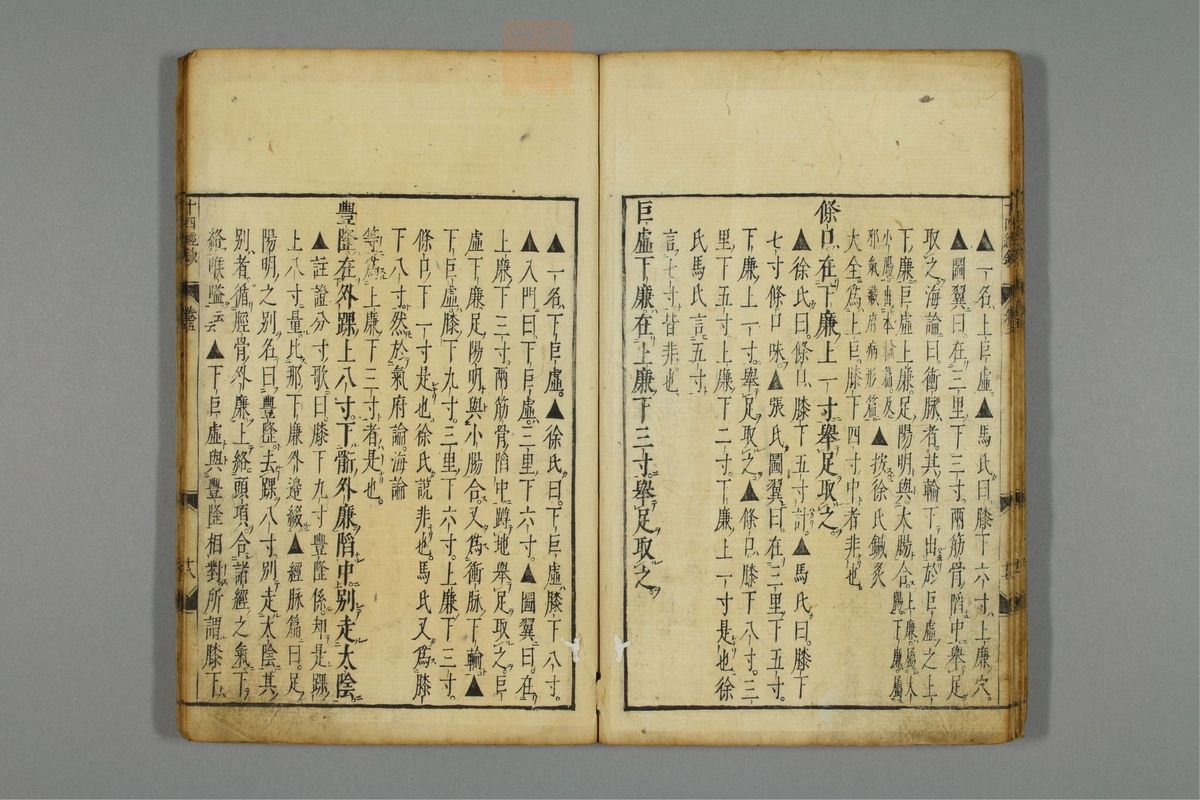 ▲一名上巨虛▲馬氏曰膝下六寸上廉穴
▲圖翼曰在三里下三寸兩筋骨陷中舉足
取之海論曰衝脉者其輸下出於巨虛之上
下廉巨虛上廉足陽明與大腸合上廉屬大腸下廉屬
小腸出本輸篇及邪氣藏府病形篇▲按徐氏鍼灸
大全爲上巨膝下四寸中者非也
條口在下廉上一寸舉足取之
▲徐氏曰條口膝下五寸計▲馬氏曰膝下
七寸條口味▲張氏圖翼曰在三里下五寸
下廉上一寸舉足取之▲條口膝下八寸三
里下五寸上廉下二寸下廉上一寸是也徐
氏馬氏言五寸
言七寸皆非也
巨虛下廉在上廉下三寸舉足取之
▲一名下巨虛▲徐氏曰下巨虛膝下八寸
▲入門曰下巨虛三里下六寸▲圖翼曰在
上廉下三寸兩筋骨陷中蹲地舉足取之巨
虛下廉足陽明與小腸合又爲衝脉下輸▲
下巨虛膝下九寸三里下六寸上廉下三寸
條口下一寸是也徐氏說非也馬氏又爲膝
下八寸然於氣府論海論
等爲上廉下三寸者是也
豐隆在外踝上八寸下䯒外廉陷中別走太陰
▲註證分寸歌曰膝下九寸豐隆係知是踝
上八寸量比那下廉外邊綴▲經脉篇曰足
陽明之別名曰豐隆去踝八寸別走太陰其
別者循脛骨外廉上絡頭項合諸經之氣下
絡喉嗌云云▲下巨虛與豐隆相對所謂膝下
十四經
廿八